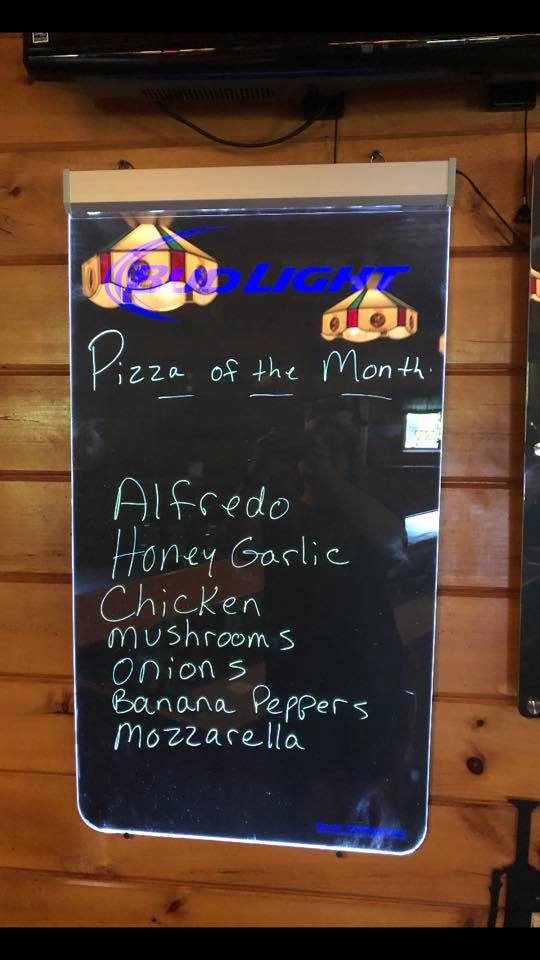 BUD LIGHT
Pizza of the Month.
Alfredo
Honey Garlic
Chicken
mushrooms
onions
Banana Peppers
Mozzarella